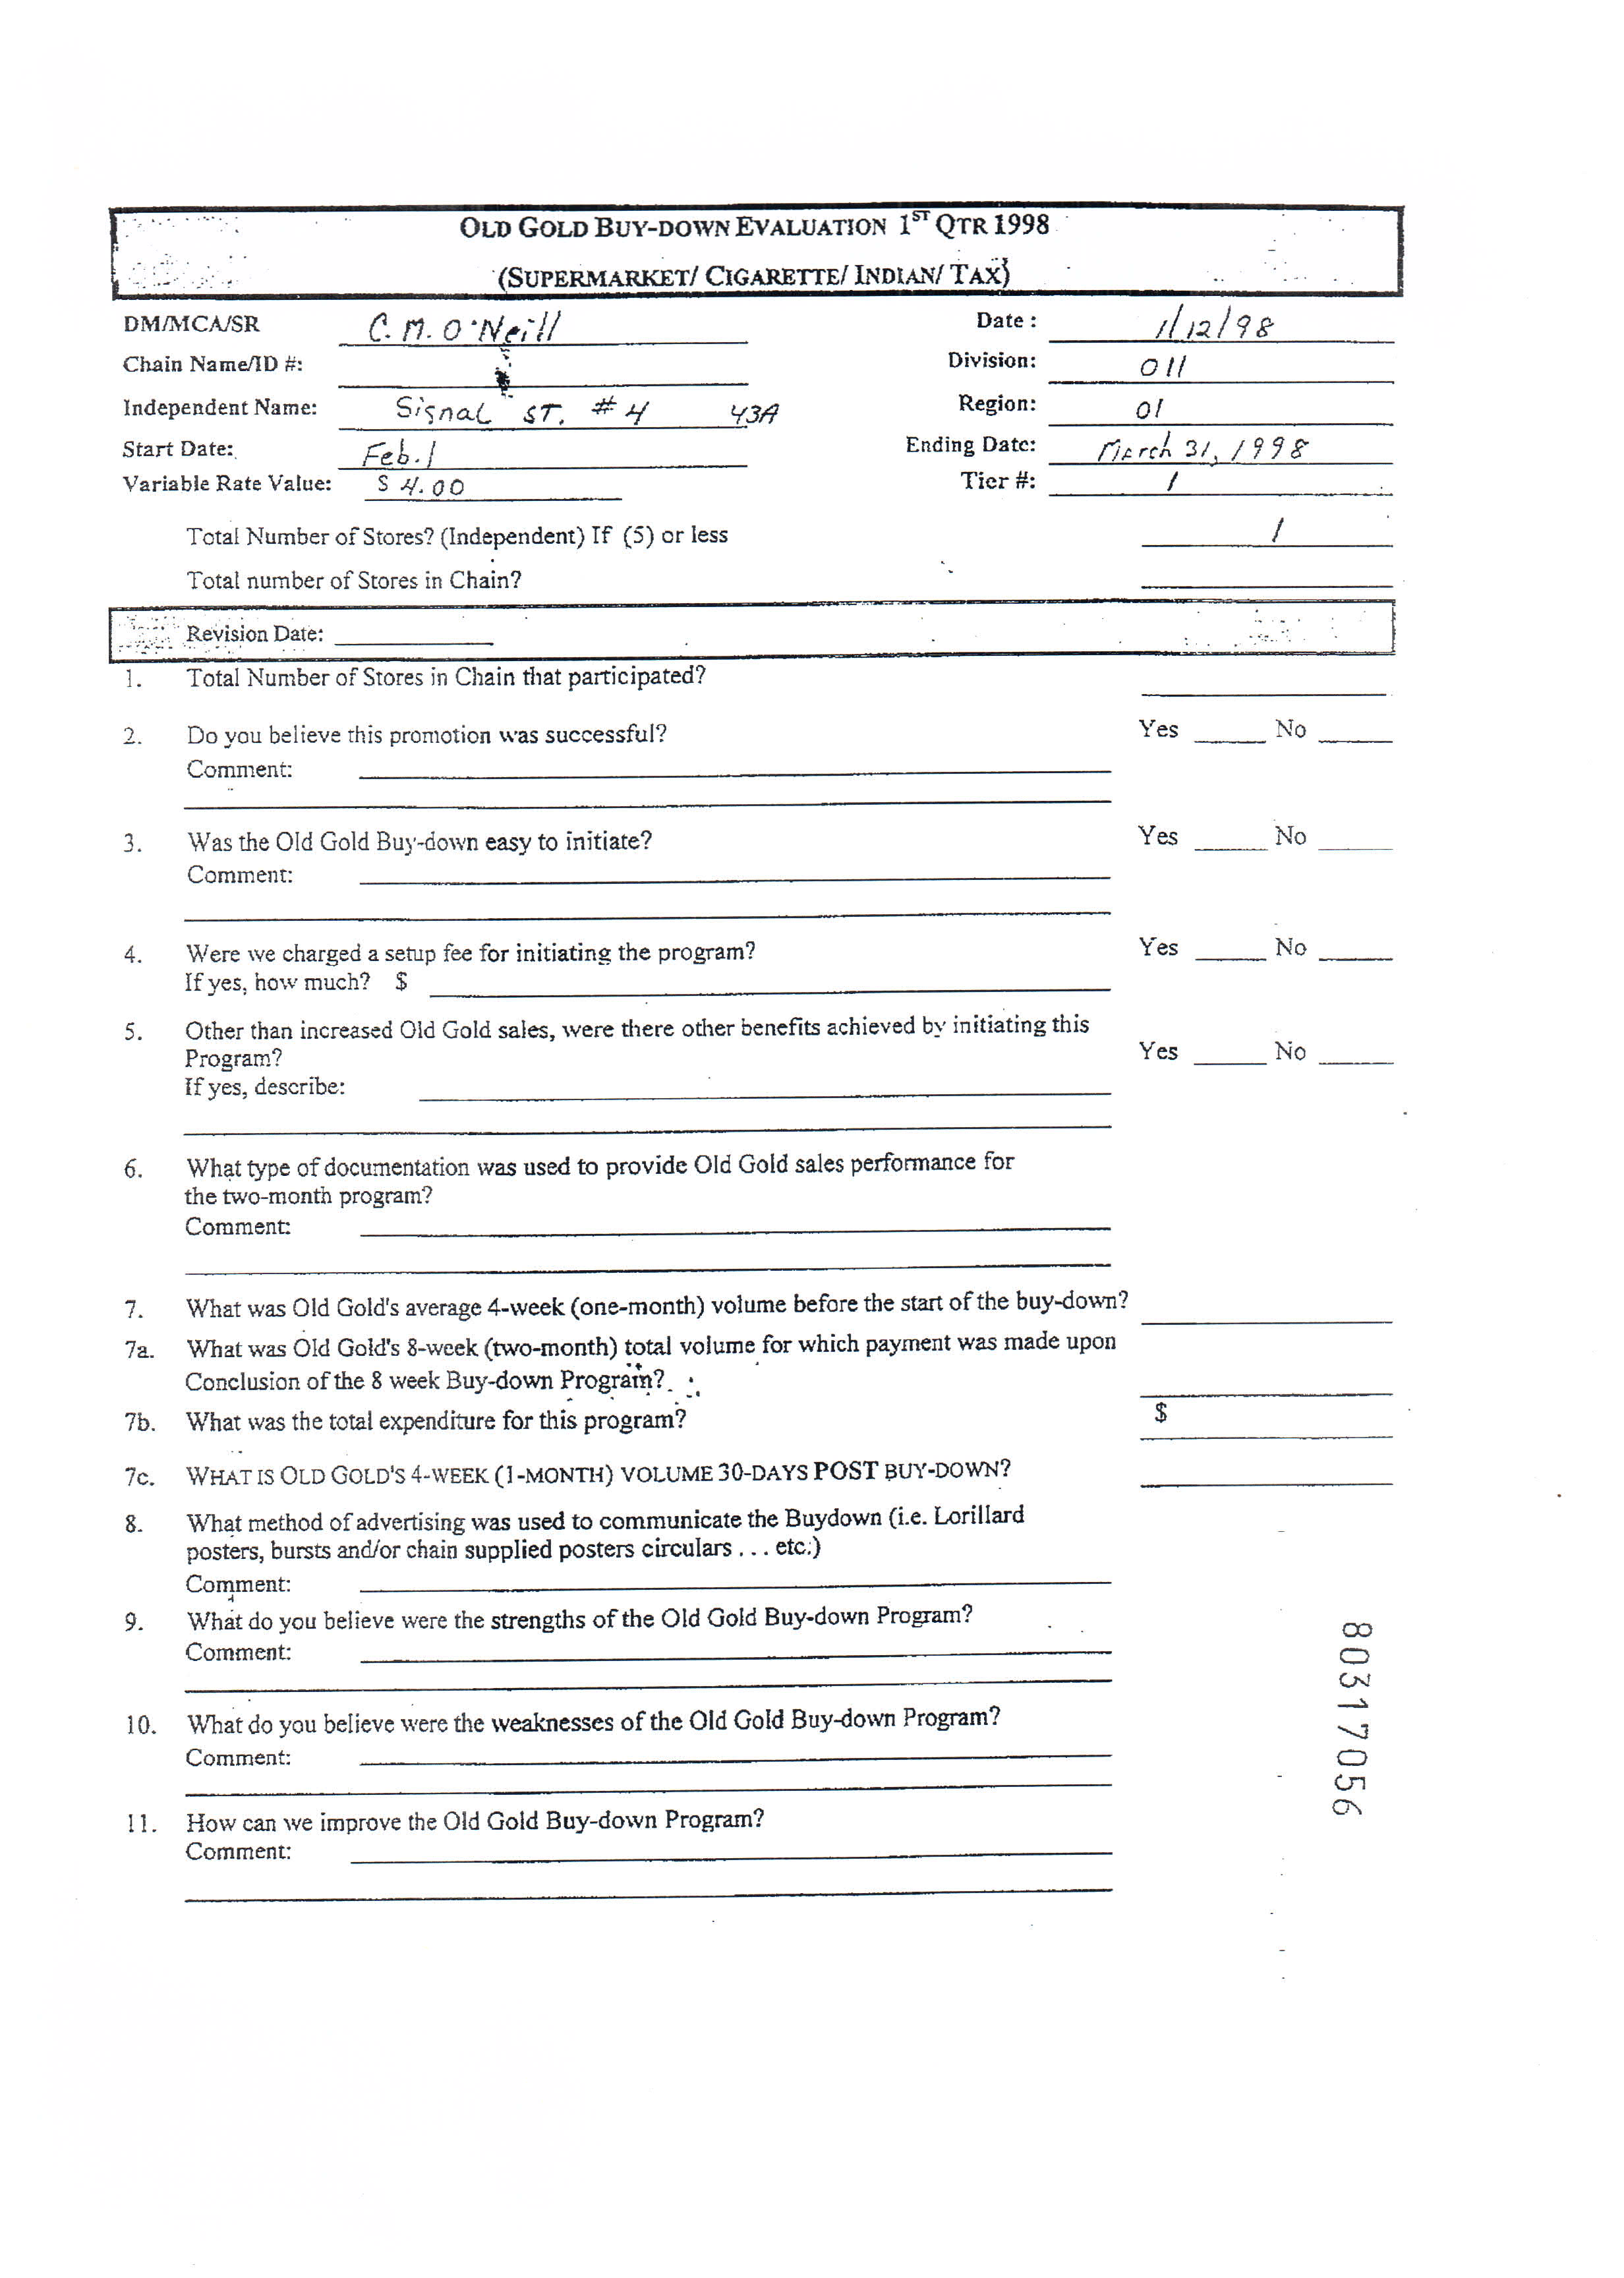 OLD GOLD BUY-DOWN EVALUATION 1ST QTR 1998
(SUPERMARKET/ CIGARETTE/ INDIAN/ TAX)
DM/MCA/SR C. M. O'Neill Date : 1/12/98
Chain Name/ID #: Division: 011
Independent Name: Signal ST. # 4 43A Region: 01
Start Date: Feb. 1 Ending Date: March 31, 1998
Variable Rate Value: $ 4.00 Tier #: 1
Total Number of Stores? (Independent) If (5) or less 1
Total number of Stores in Chain?
Revision Date:
1. Total Number of Stores in Chain that participated?
2. Do you believe this promotion was successful? Yes No
Comment:
3. Was the Old Gold Buy-down easy to initiate? Yes No
Comment:
4. Were we charged a setup fee for initiating the program? Yes No
If yes, how much? $
5. Other than increased Old Gold sales, were there other benefits achieved by initiating this
Program? Yes No
If yes, describe:
6. What type of documentation was used to provide Old Gold sales performance for
the two-month program?
Comment:
7. What was Old Gold's average 4-week (one-month) volume before the start of the buy-down?
7a. What was Old Gold's 8-week (two-month) total volume for which payment was made upon
Conclusion of the 8 week Buy-down Program?
7b. What was the total expenditure for this program? $
7c. WHAT IS OLD GOLD'S 4-WEEK (1-MONTH) VOLUME 30-DAYS POST BUY-DOWN?
8. What method of advertising was used to communicate the Buydown (i.e. Lorillard
posters, bursts and/or chain supplied posters circulars . . . etc.)
Comment:
9. What do you believe were the strengths of the Old Gold Buy-down Program?
Comment:
10. What do you believe were the weaknesses of the Old Gold Buy-down Program?
Comment:
11. How can we improve the Old Gold Buy-down Program?
Comment:
80317056